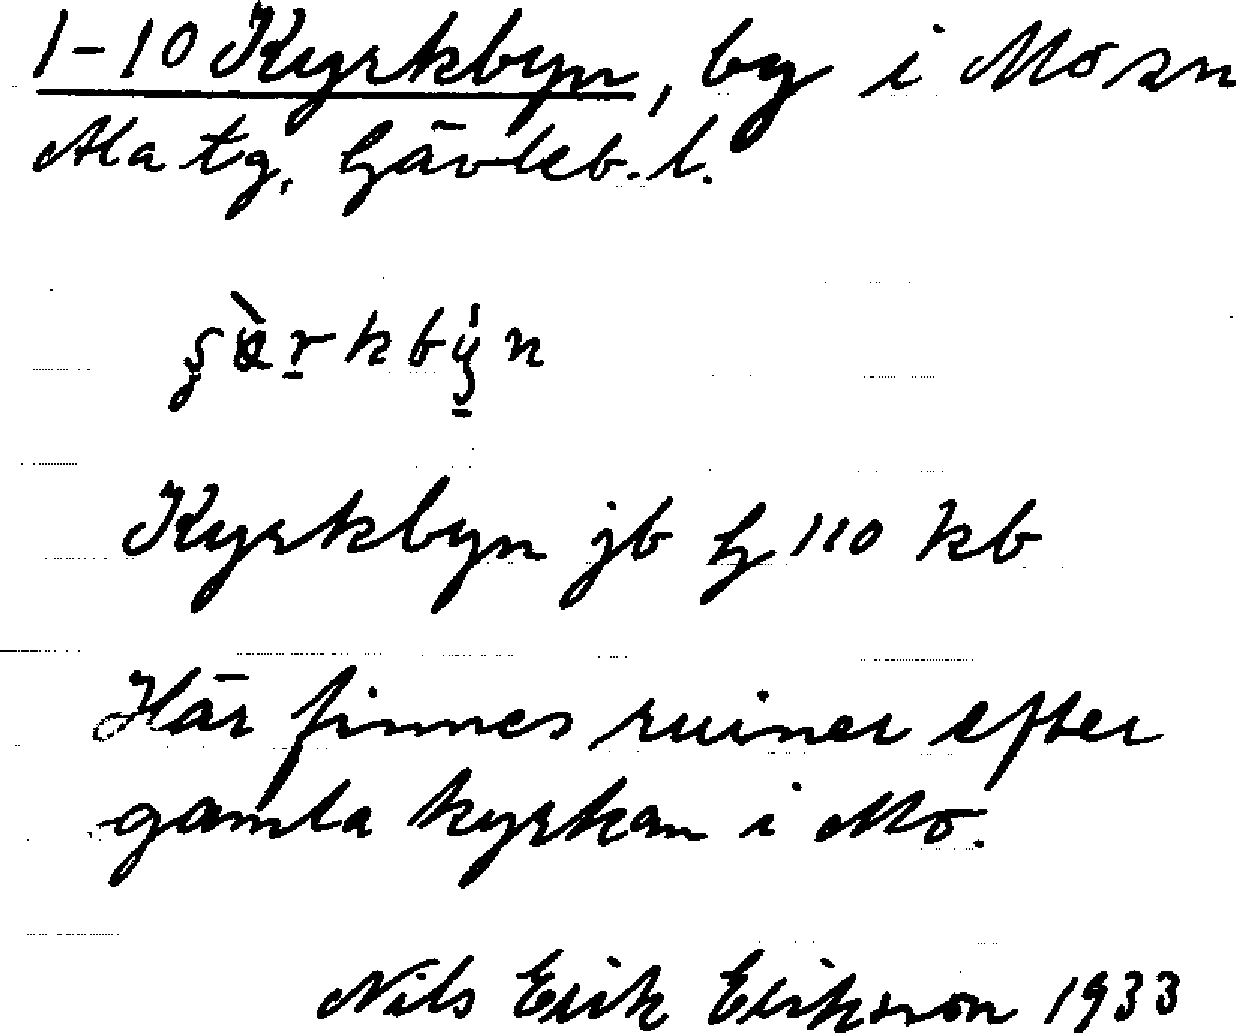 1-10 Kyrkbyn, by i Mo sn
Ala tg, Gävleb. l.
Kyrkbyn jb G 110 kb
Här finnes ruiner efter
gamla kyrkan i Mo.
Nils Erik Eriksson 1933